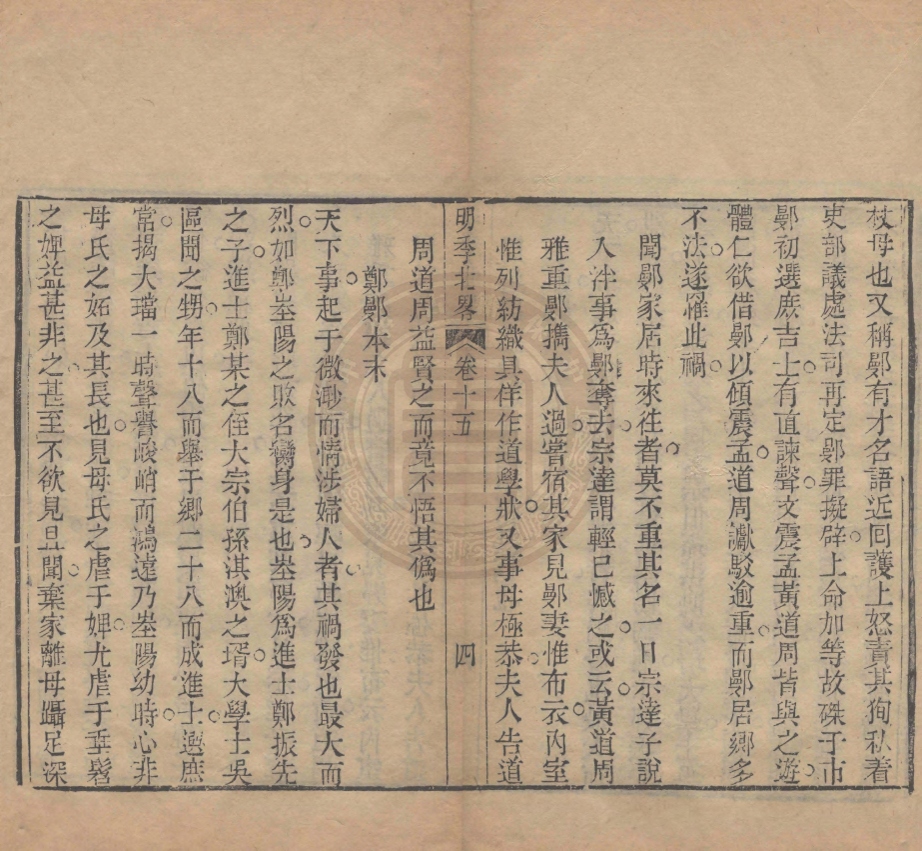 杖母也又稱鄤有才名語近回護上怒責其狥私着
吏部議處法司再定鄤罪擬辟上命加等故磔于市
鄤初選庶吉士有直諫聲文震孟黃道周皆與之遊
體仁欲借鄤以傾震孟道周讞駁逾重而鄤居鄉多
不法遂罹此禍
聞鄤家居時來往者莫不重其名一日宗達子說
入泮事爲鄤奪去宗達謂輕已憾之或云黃道周
雅重鄤擕夫人過嘗宿其家見鄤妻惟布衣內室
惟列紡織具佯作道學狀又事母極恭夫人告道
明季北畧 卷十五 四
周道周益賢之而竟不悟其僞也
鄭鄤本末
天下事起于微渺而情涉婦人者其禍發也最大而
烈如鄭峚陽之敗名臠身是也峚陽爲進士鄭振先
之子進士鄭某之侄大宗伯孫淇澳之壻大學士吳
區聞之甥年十八而舉于鄉二十八而成進士選庶
常揭大璫一時聲譽峻峭而鴻遠乃峚陽幼時心非
母氏之妬及其長也見母氏之虐于婢尤虐于季鬟
之婢益甚非之甚至不欲見且聞棄家離母躡足深